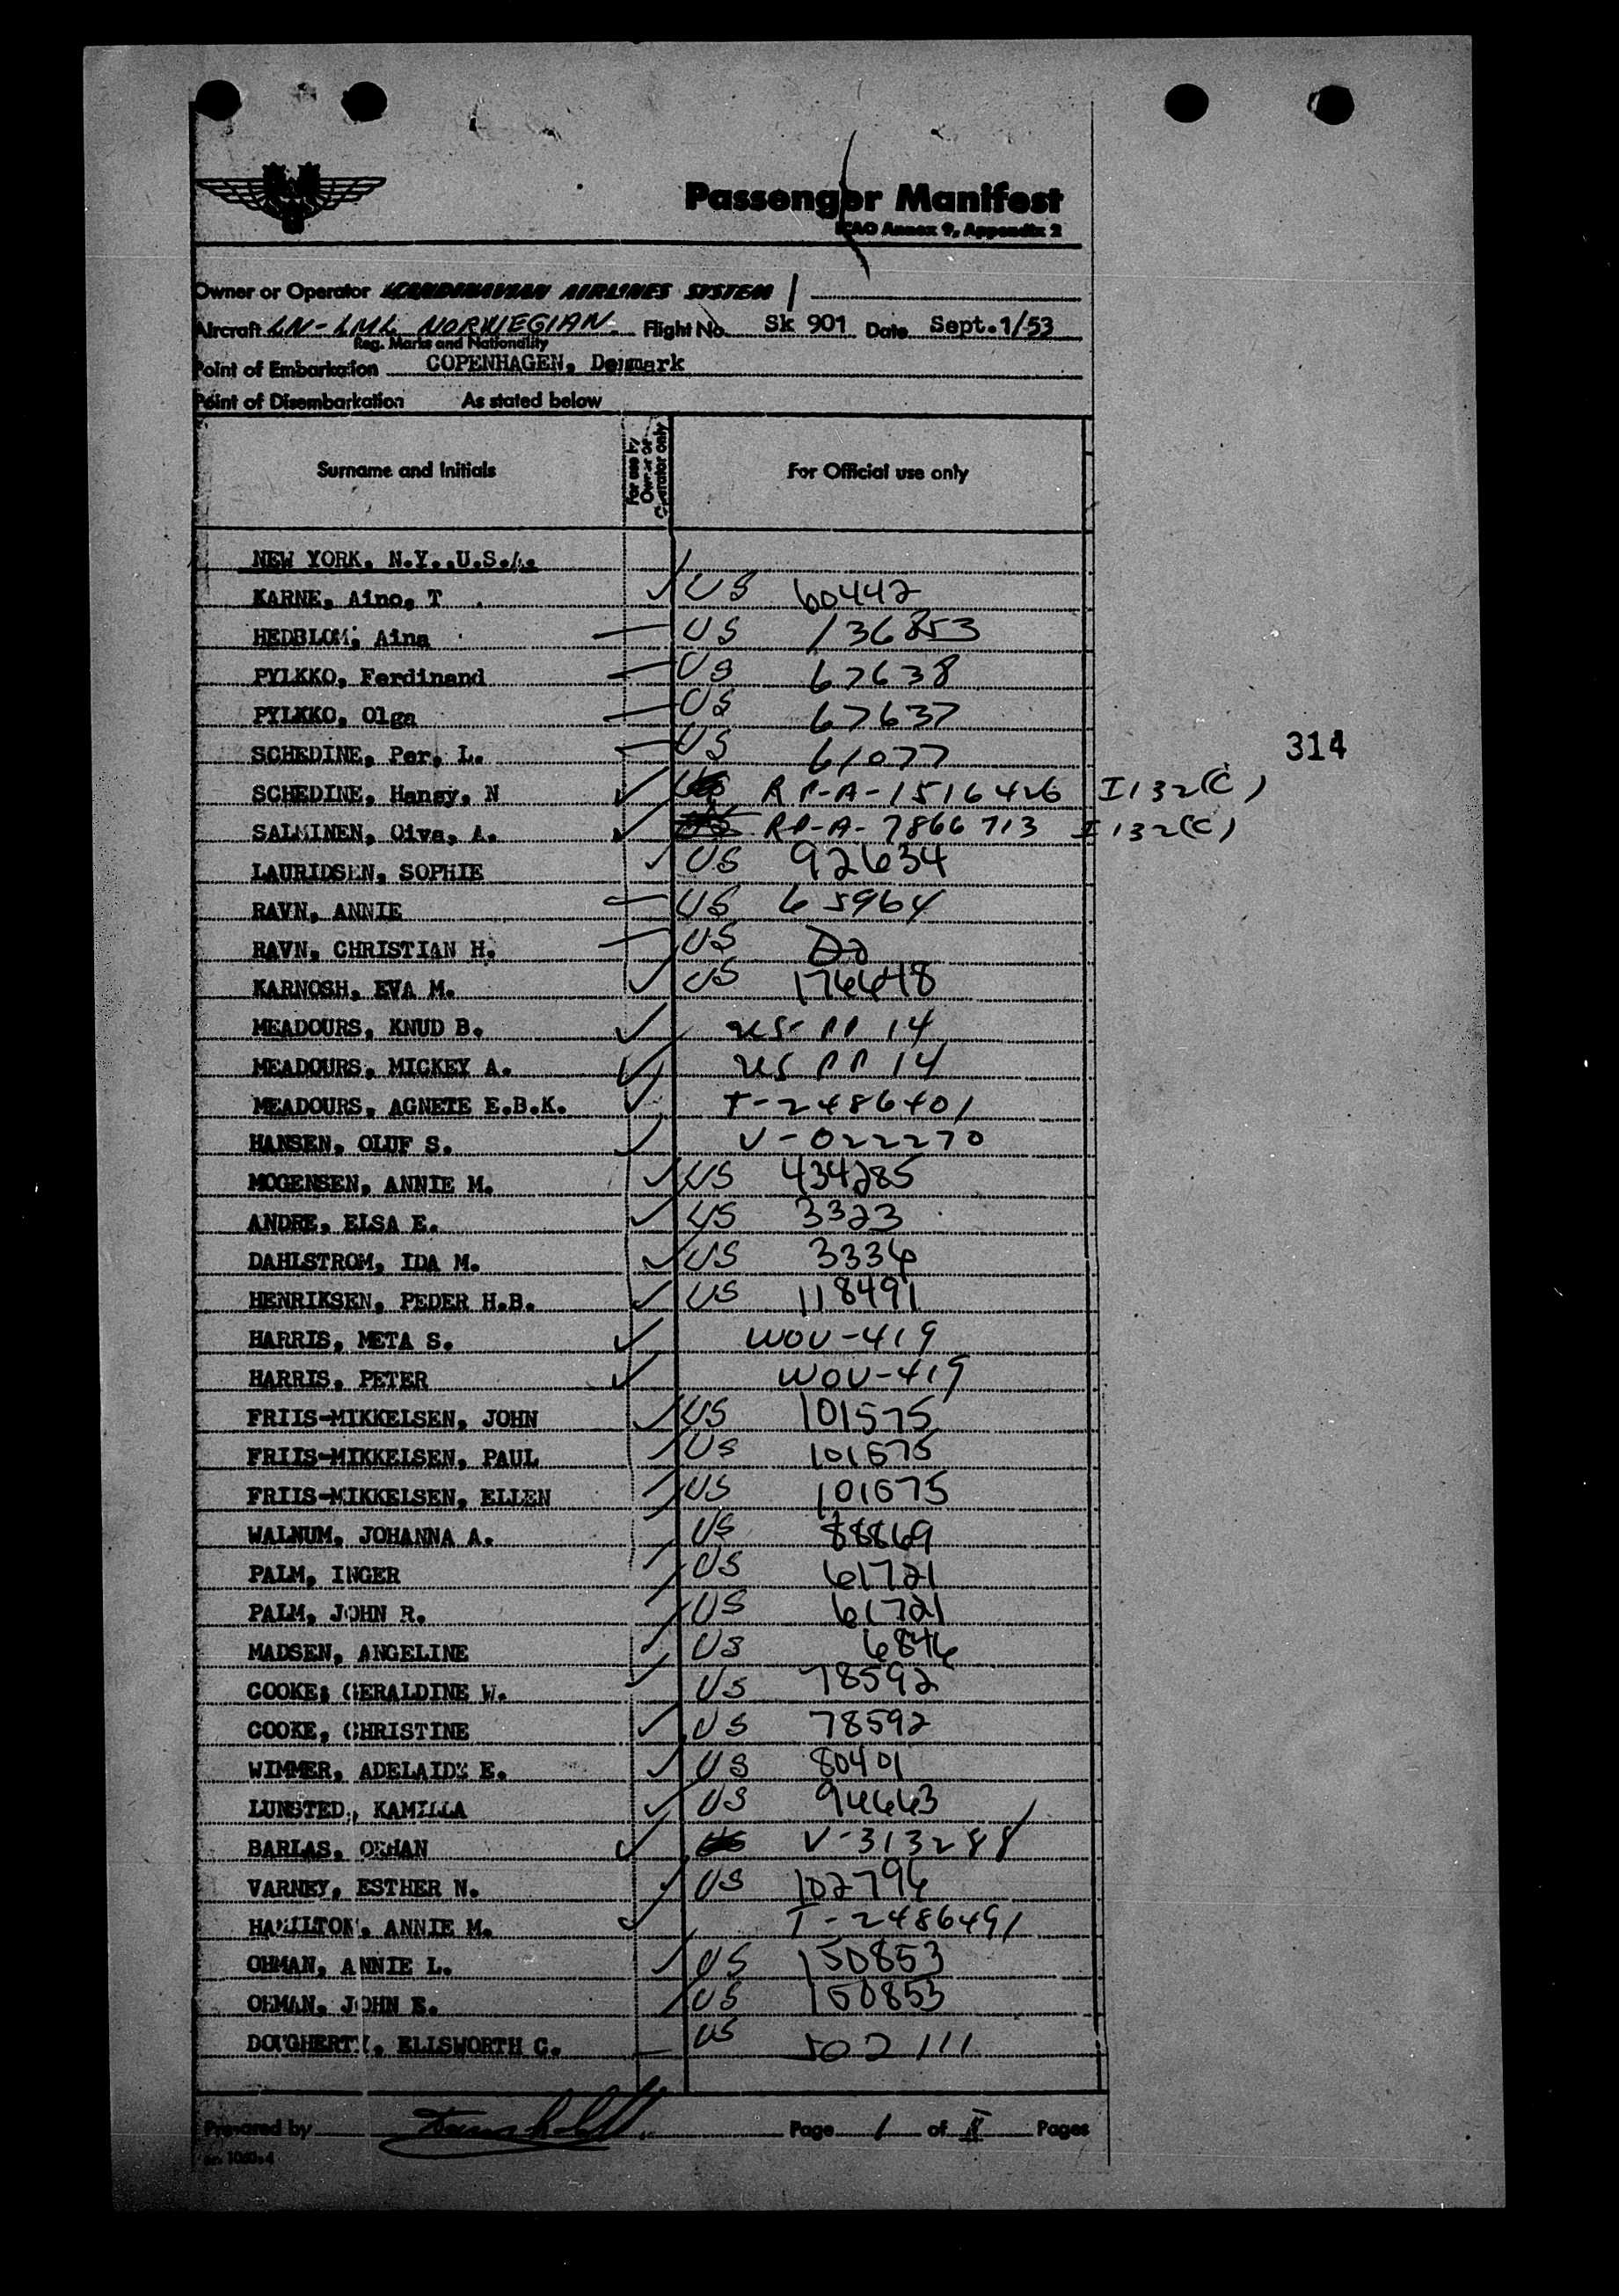 Passenger Manifest
ICAO Annex 9, Appendix 2
Owner or Operator SCANDINAVIAN AIRLINES SYSTEM
Aircraft LN-LML NORWEGIAN Flight No. Sk 901 Date Sept.1/53
Reg. Marks and Nationality
Point of Embarkation COPENHAGEN, Denmark
Point of Disembarkation As stated below
Surname and Initials For use by Owner or Operator only For Official use only
NEW YORK, N.Y.,U.S.A.
KARNE, Aino, T. US 60442
HEDBLOM, Aina US 136853
PYLKKO, Ferdinand US 67638
PYLKKO, Olga US 67637
314
SCHEDINE, Per, L. US 61077
SCHEDINE, Hansy, N RP-A-1516426 I132(C)
SALMINEN, Oiva, A. RP-A-7866713 I132(C)
LAURIDSEN, SOPHIE US 92634
RAVN, ANNIE US 65964
RAVN, CHRISTIAN H. US Do
KARNOSH, EVA M. US
MEADOURS, KNUD B. US PP 14
MEADOURS, MICKEY A. US PP 14
MEADOURS, AGNETE E.B.K. T-2486401
HANSEN, OLUF S. V-022270
MOGENSEN, ANNIE M. US 434285
ANDRE, ELSA E. US 3323
DAHLSTROM, IDA M. US 3336
HENRIKSEN, PEDER H.B. US 118491
HARRIS, META S. WOU-419
HARRIS, PETER WOU-419
FRIIS-MIKKELSEN, JOHN US 101575
FRIIS-MIKKELSEN, PAUL US 101575
FRIIS-MIKKELSEN, ELLEN US 101575
WALNUM, JOHANNA A. US 88869
PALM, INGER US 61721
PALM, JOHN R. US 61721
MADSEN, ANGELINE US 6846
COOKE, GERALDINE W. US 78592
COOKE, CHRISTINE US 78592
WIMMER, ADELAIDE E. US 80401
LUNSTED, KAMILLA US 94663
BARLAS, ORHAN V-313288
VARNEY, ESTHER N. US 102796
HAMILTON, ANNIE M. T-2486491
OHMAN, ANNIE L. US 150853
OHMAN, JOHN E. US 150853
DOUGHERTY, ELLSWORTH C. US 502111
Prepared by Page 1 of II Pages